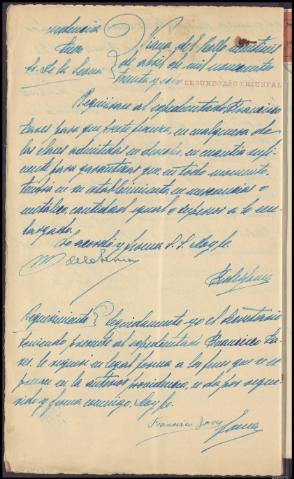 Providencia
Juez
Sr. de la Serna
Vianos del Hallo veintiseis
de abril de mil novecientos
treinta y seis
SEGUNDO AÑO TRIUNFAL
Requierase al expedientado Francisco
Garey para que preste fianza, en cualquiera de
las clases admitidas en derecho, en cuantía sufi-
ciente para garantizar que en todo momento
tendrá en su establecimiento en mercancias o
metalico, cantidad igual o superior a lo em-
bargado.
Lo acordó y firma S.S. doy fe.
Requerimiento Seguidamente yo el Secretario
teniendo presente al expedientado Francisco
le requerí en legal forma a los fines que se ex-
presan en la anterior providencia, se da por reque-
rido y firma conmigo, doy fe.
Francisco